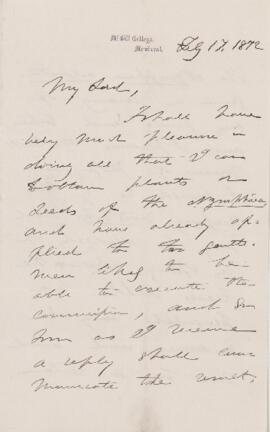 McGill College,
Montreal.
Feby 17. 1872
My Lord,
I shall have
very much pleasure in
doing all that I can
to obtain plants or
seeds of the Nymphaea
and have already ap-
plied to two gentle-
men likely to be
able to execute the
commission, and so
soon as I receive
a reply shall com-
municate the result.